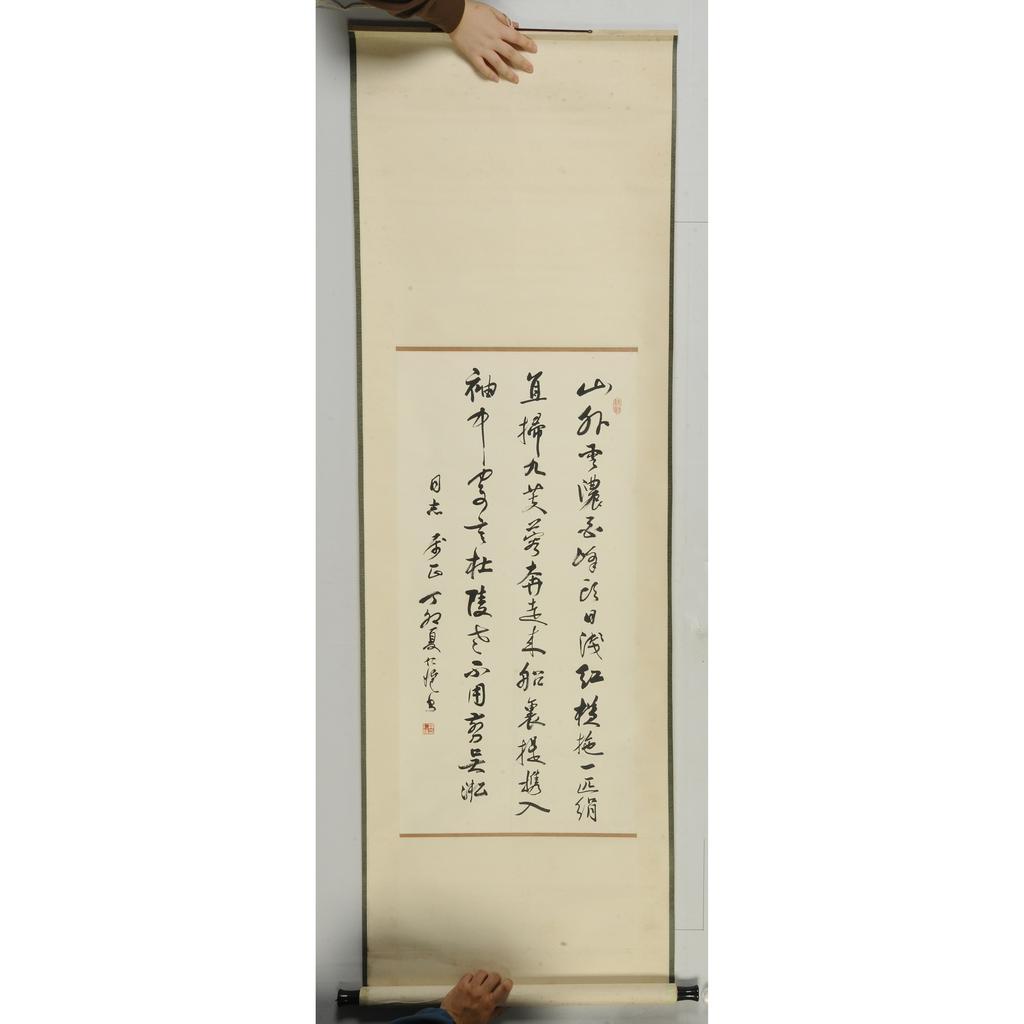 山外雲濃白峰頭日淺紅橫拖一匹絹
直掃九芙蓉奔走來船裏提攜入
袖中寄言杜陵老不用剪吳淞
同志 屬正 丁卯夏仁愷書